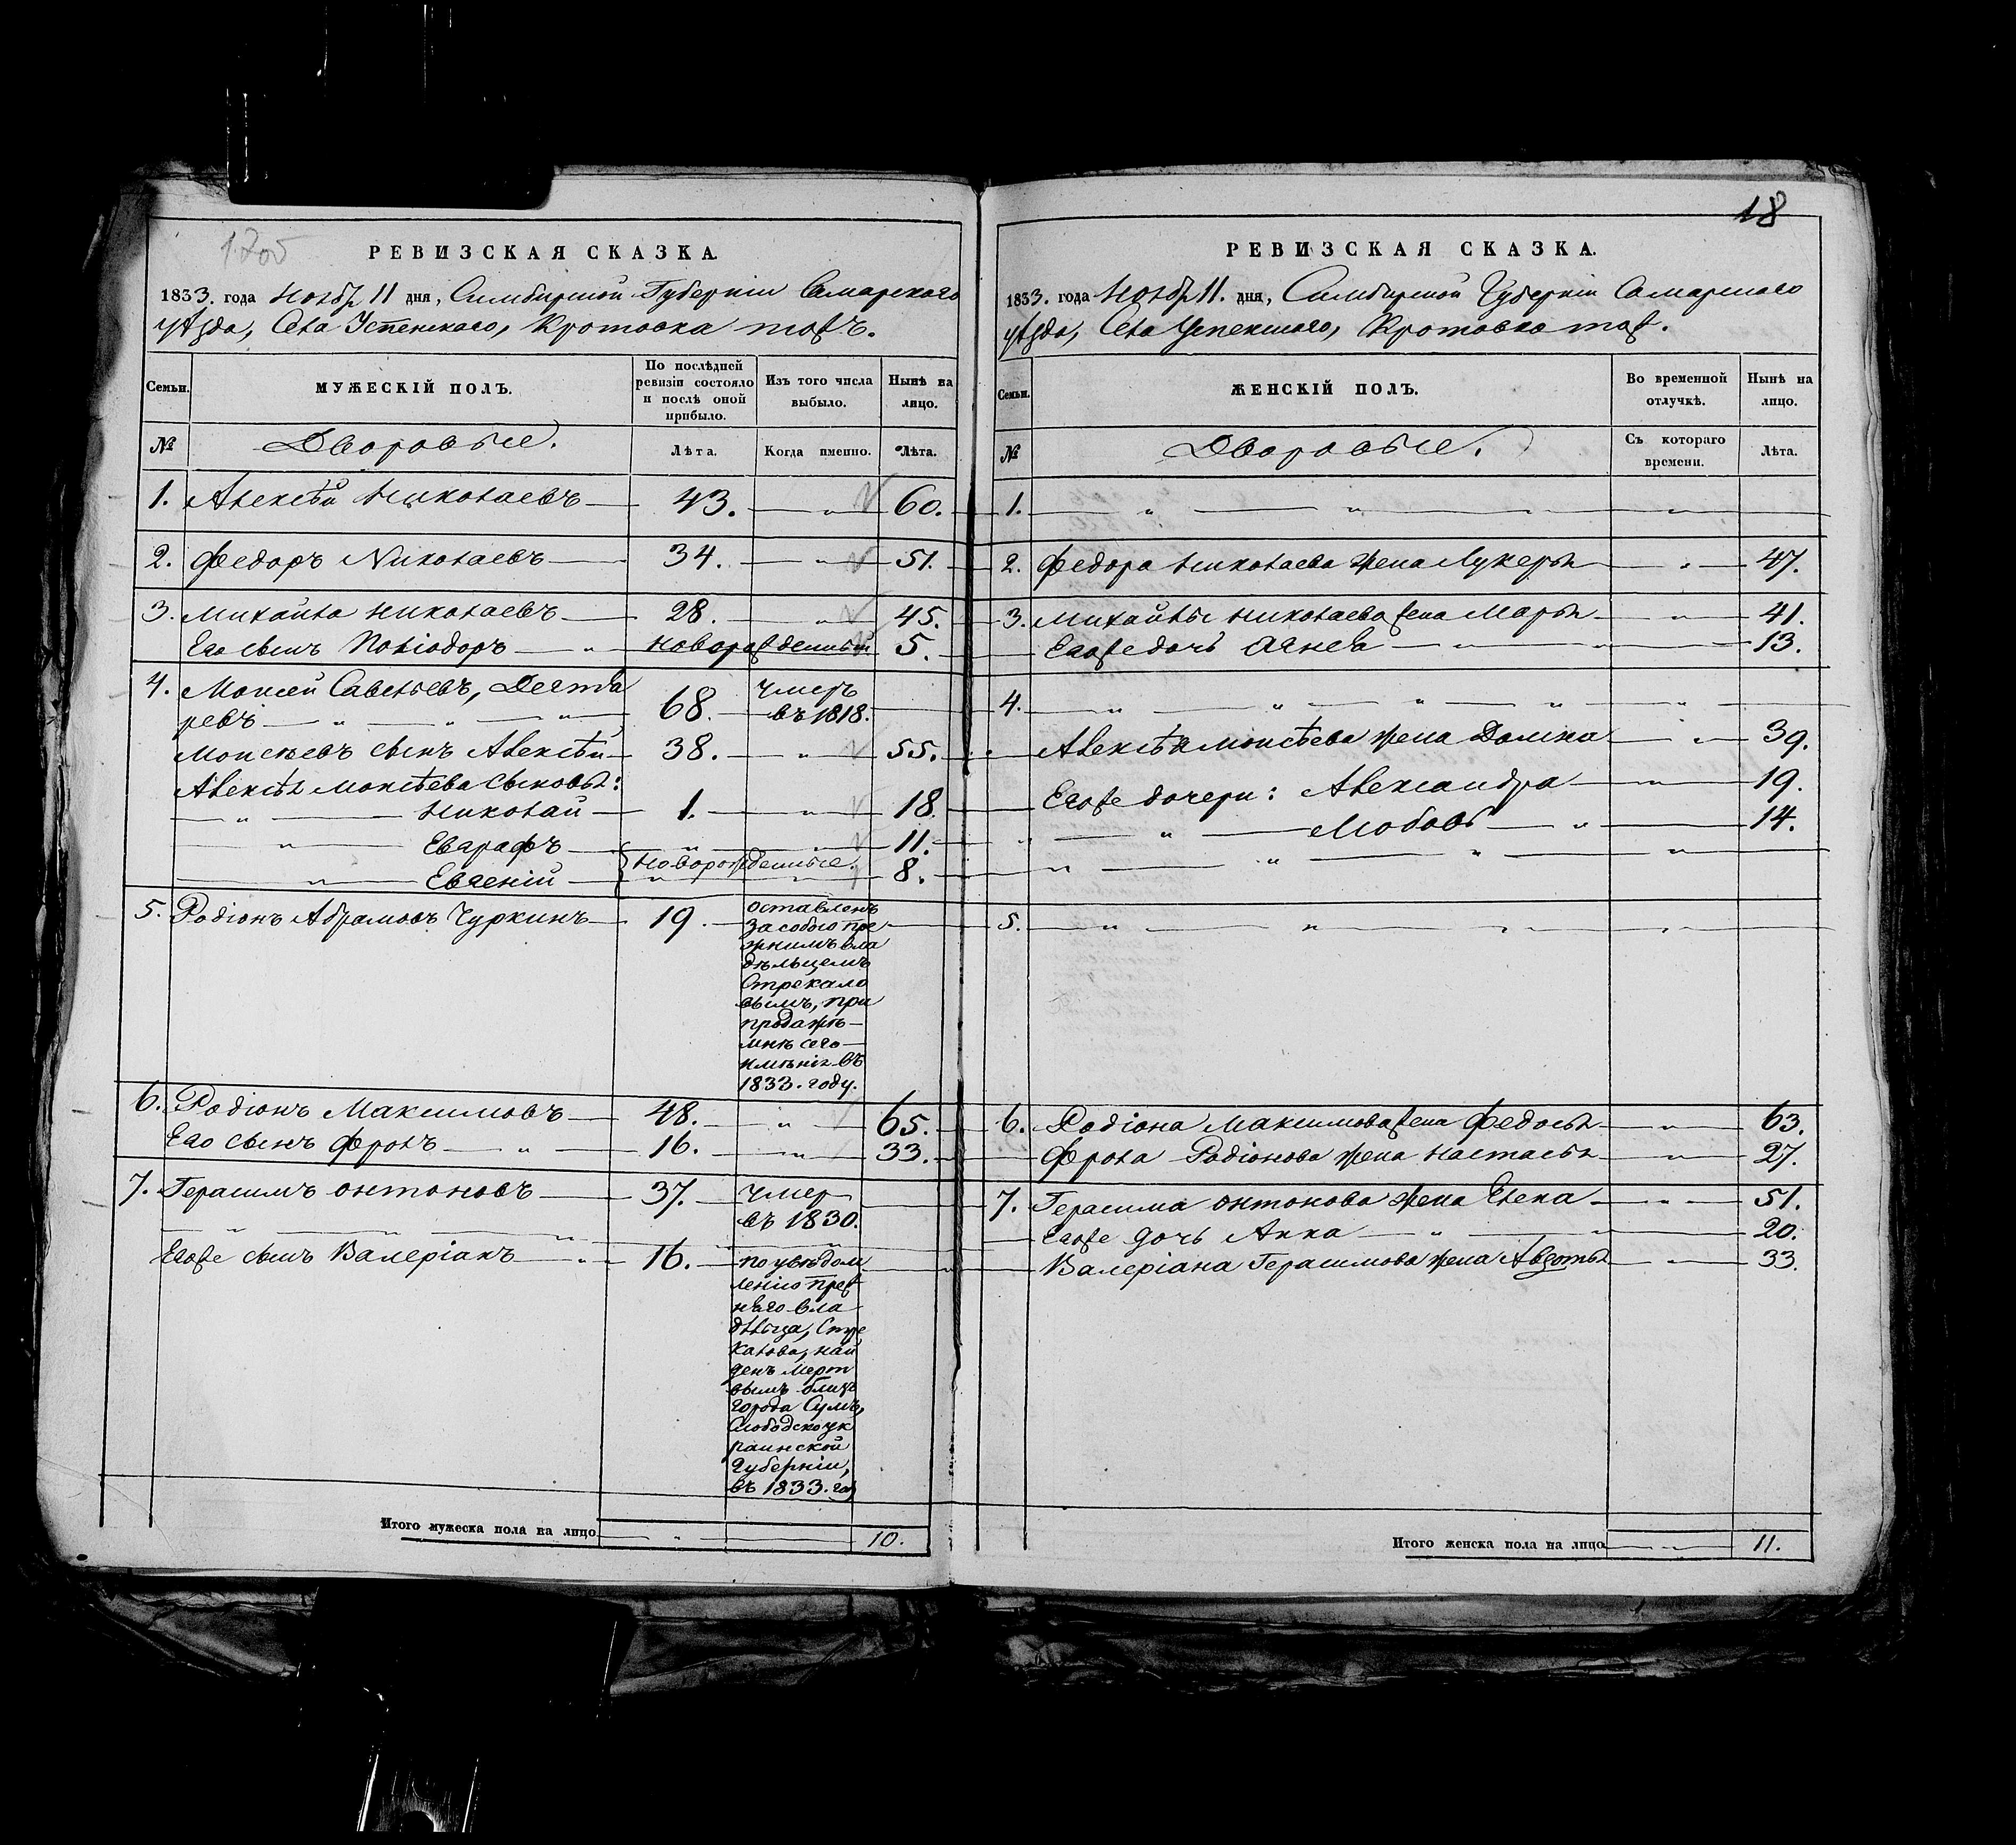 18
РЕВИЗСКАЯ СКАЗКА.
1833. года Ноября 11 дня, Симбирской Губерніи Самарскаго
уѣзда, Села Успенскаго, Кротовка тожъ.
Семьи.
МУЖЕСКІЙ ПОЛЪ.
По послѣдней ревизіи состояло и послѣ оной прибыло.
Изъ того числа выбыло.
Нынѣ на лицо.
№
Дворовые.
Лѣта.
Когда именно.
Лѣта.
1. Алексѣй Николаевъ 43. " 60.
2. Федоръ Николаевъ 34. " 51.
3. Михайла Николаевъ 28. " 45.
Его сынъ Поліодоръ " новорожденный 5.
4. Моисей Савельевъ, Дегтя
ревъ " " " 68. Умеръ въ 1818.
Моисѣевъ сынъ Алексѣй 38. " 55.
Алексѣя Моисѣева сыновья:
" Николай 1. " 18.
" Еварафъ " " 11.
новорожденные.
" Евгеній " " 8.
5. Родіонъ Абрамовъ Чуркинъ 19.
оставленъ
за собою пре
жнимъ вла
дѣльцемъ
Стрекало
вымъ, при
продажѣ
мнѣ сего
имѣнія въ
1833. году.
6. Родіонъ Максимовъ 48. " 65.
Его сынъ Фролъ " 16. " 33.
7. Герасимъ Онтоновъ 37. Умер
въ 1830.
Егоже сынъ Валеріанъ " 16.
по увѣдом
ленію преж
няго вла
дѣльца, Стре
калова, най
денъ мерт
вымъ близъ
города Сумъ,
Слободскоук
раинской
губерніи,
въ 1833. год
Итого мужеска пола на лицо " 10.
РЕВИЗСКАЯ СКАЗКА.
1833. года Ноября 11. дня, Симбирской Губерніи Самарскаго
уѣзда, Села Успенскаго, Кротовка тож.
Семьи.
ЖЕНСКІЙ ПОЛЪ.
Во временной отлучкѣ.
Нынѣ на лицо.
№
Дворовые.
Съ котораго времени.
Лѣта.
1. " " " "
2. Федора Николаева жена Лукерья " 47.
3. Михайлы Николаева жена Марья " 41.
Егоже дочь Агнея " " 13.
4. " " " " "
Алексѣя Моисѣева жена Домна " 39.
Егоже дочери: Александра " 19.
" " Любовь " 14.
" " " "
5. " " " "
6. Родіона Максимова жена Федосья " 63.
Фрола Родіонова жена Настасья " 27.
7. Герасима Онтонова жена Елена " 51.
Егоже дочь Анна " " 20.
Валеріана Герасимова жена Авдотья " 33.
Итого женска пола на лицо " 11.